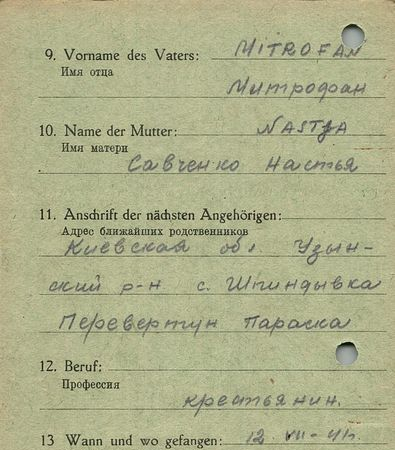 9. Vorname des Vaters: MITROFAN
Имя отца
Митрофан
10. Name der Mutter: NASTJA
Имя матери
Савченко Настья
11. Anschrift der nächsten Angehörigen:
Адрес ближайших родственников
Киевская обл Узын-
ский р-н с. Шпиндывка
Перевертун Параска
12. Beruf:
Профессия
крестьянин.
13 Wann und wo gefangen: 12 VII-41г.